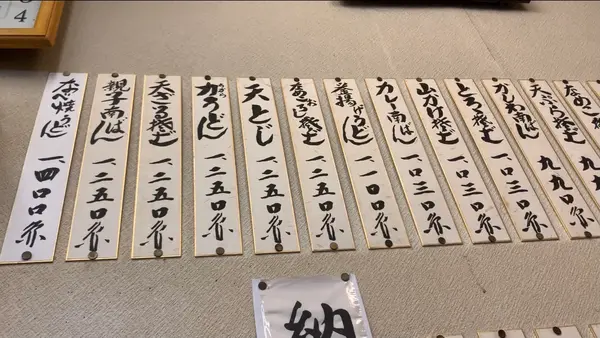 なめこ 九九〇
天ぷらそば 九九〇円
かしわ南ばん 一、〇三〇円
とろろそば 一、〇三〇円
山かけそば 一、〇三〇円
カレー南ばん 一、〇三〇円
釜揚げうどん 一、一〇〇円
なめこおろしそば 一、二五〇円
天とじ 一、二五〇円
力うどん 一、二五〇円
天ざるそば 一、二五〇円
親子南ばん 一、二五〇円
なべ焼うどん 一、四〇〇円
納
4